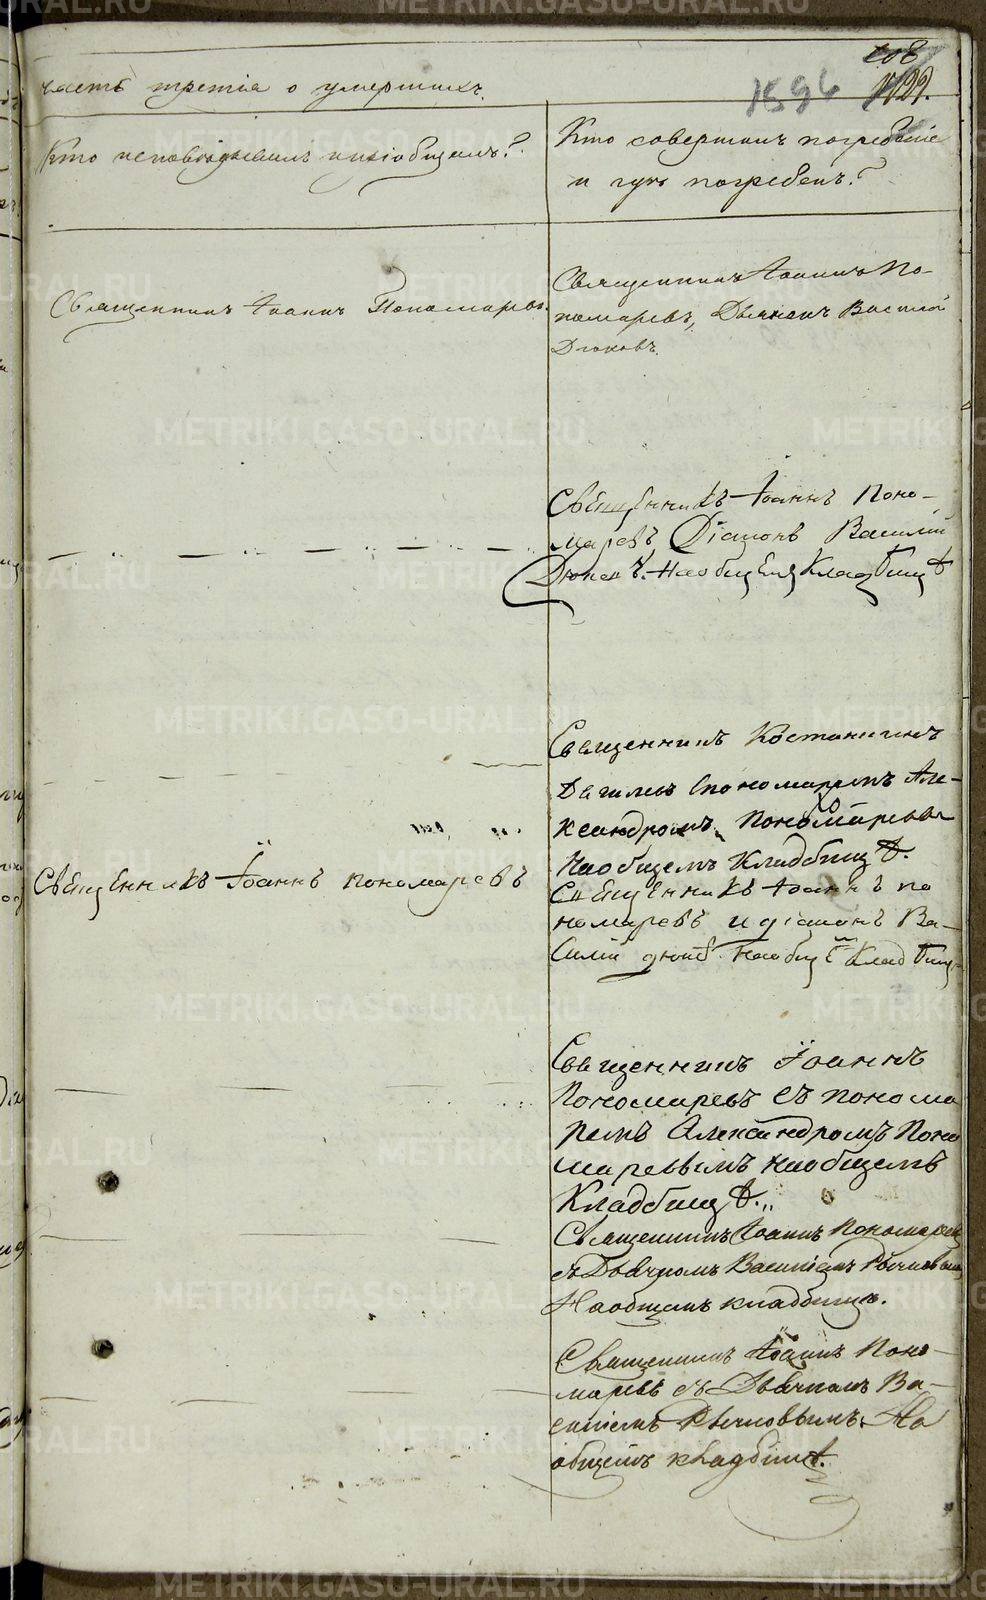 часть третія о умершихъ.
1596
Кто исповѣдывалъ и пріобщалъ?
Кто совершалъ погребеніе
и гдѣ погребенъ?
Священникъ Іоаннъ Пономаревъ.
Священникъ Іоаннъ По-
номаревъ, Дьяконъ Василій
Дюковъ.
Священникъ Іоаннъ Поно-
маревъ Діаконъ Василій
на общемъ Кладбищѣ
Священникъ Костантинъ
съ пономаремъ Але-
ксандромъ Пономаревымъ
на общемъ Кладбищѣ.
Священникъ Іоаннъ пономаревъ
Священникъ Іоаннъ по
номаревъ и діаконъ Ва-
силій на общ Кладбищ
Священникъ Іоаннъ
Пономаревъ съ понома
ремъ Александромъ Поно
маревымъ на общемъ
Кладбищѣ.
Священникъ Іоаннъ Пономаревъ
съ Дьячкомъ Василіемъ
На общемъ кладбищѣ.
Священникъ Іоаннъ Поно-
маревъ съ Дьячкомъ Ва-
силіемъ На
общемъ кладбищѣ.
METRIKI.GASO-URAL.RU